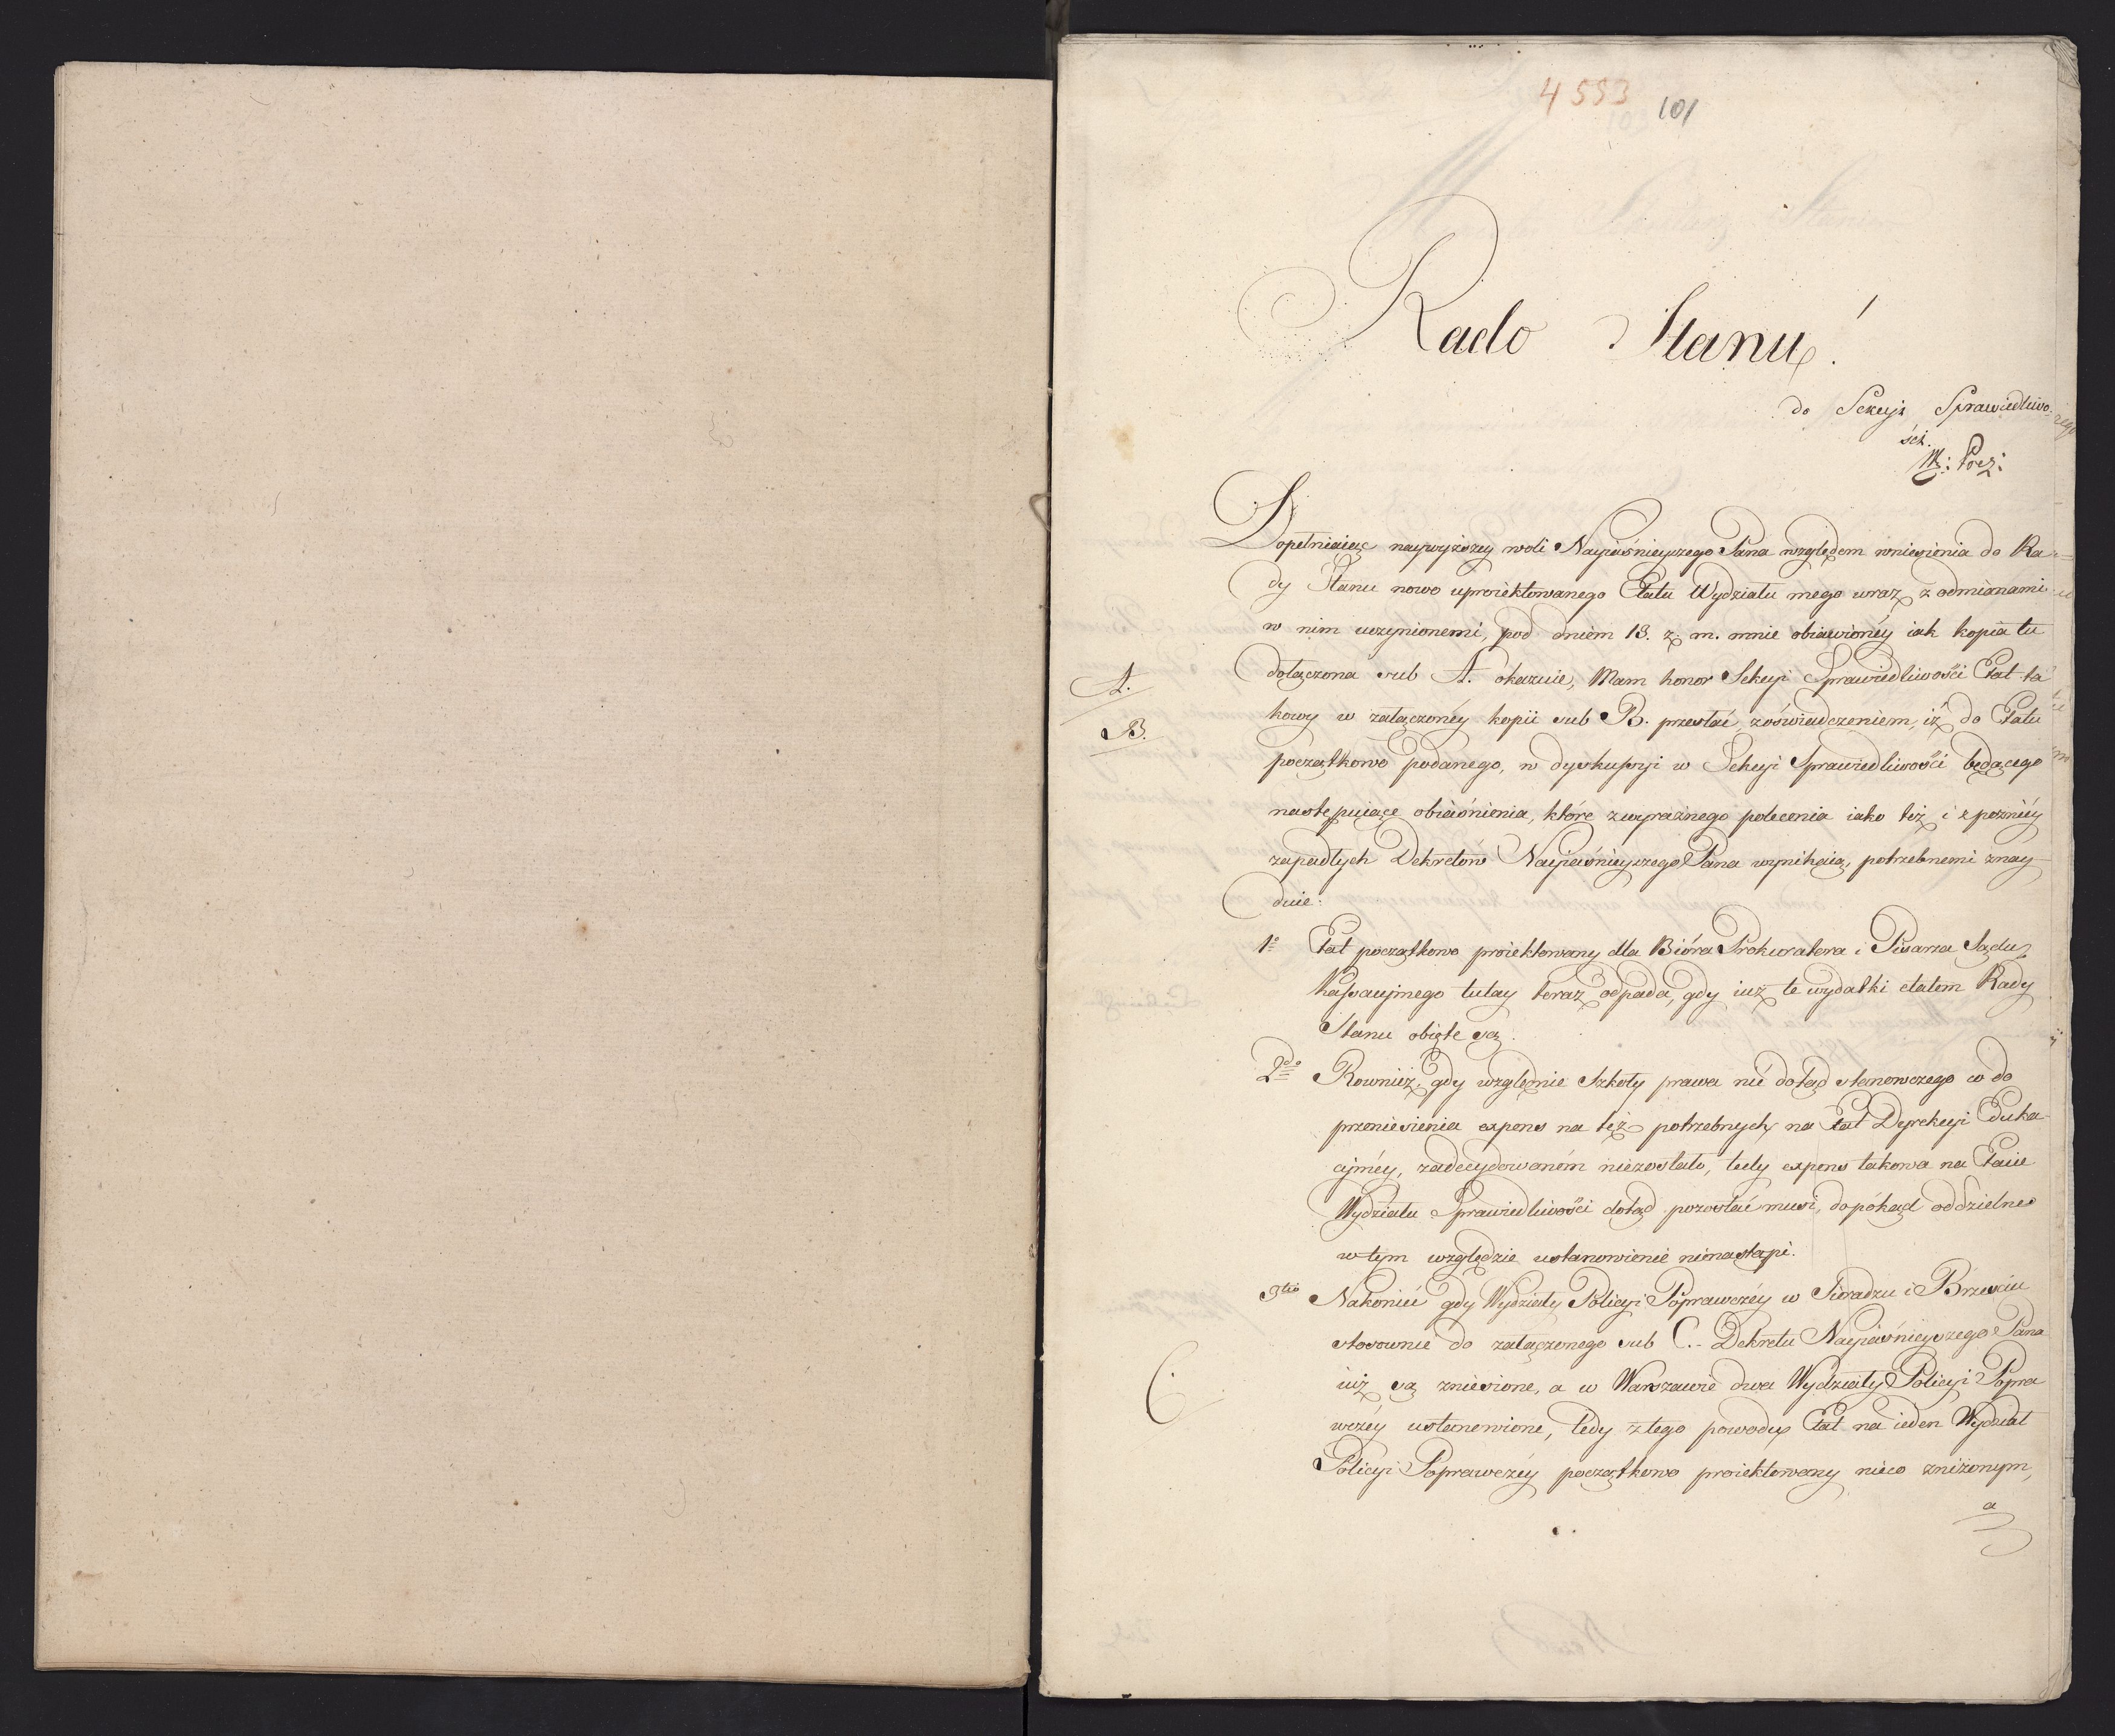 4553
101
Rado Stanu!
do Sekcyi Sprawiedliwo-
ści.
M: Prez:
Dopełniaiąc naywyższey woli Nayiaśnieyszego Pana względem wniesienia do Ra-
dy Stanu nowo uproiektowanego Etatu Wydziału mego wraz z odmianami
w nim uczynionemi, pod dniem 13. z. m. mnie obiawionéy iak kopia tu
A.
dołączona sub A. okazuie, Mam honor Sekcyi Sprawiedliwości Etat ta
B.
kowy w załączonéy kopii sub B. przesłać, zoświadczeniem, iż do Etatu
początkowo podanego, w dyskussyi w Sekcyi Sprawiedliwości będącego
następuiące obiaśnienia, które zwyraźnego polecenia iako też i z poźniéy
zapadłych Dekretów Nayiaśnieyszego Pana wynikaią, potrzebnemi znay-
duie:
1º Etat początkowo proiektowany dla Bióra Prokuratora i Pisarza Sądu
Kassacyjnego tutay teraz odpada, gdy iuż te wydatki etatem Rady
Stanu obięte są.
2do Rownież, gdy względnie Szkoły prawa nic dotąd stanowczego co do
przeniesienia expens na téż potrzebnych na Etat Dyrekcyi Eduka-
cyjnéy, zadecydowaném niezostało, tedy expens takowa na Etacie
Wydziału Sprawiedliwości dotąd pozostać musi, dopókąd oddzielne
w tym względzie ustanowienie nienastąpi.
3tio Nakoniec gdy Wydziały Policyi Poprawczéy w Sieradzu i Brześciu
stosownie do załączonego sub C.- Dekretu Nayiaśnieyszego Pana
C.
iuż są zniesione, a w Warszawie dwa Wydziały Policyi Popra
wczéy ustanowione, tedy z tego powodu Etat na ieden Wydział
Policyi Poprawczéy początkowo proiektowany nieco zniżonym,
a